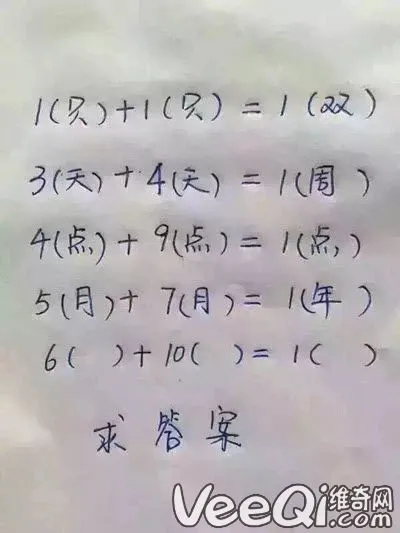 1(只)+1(只)=1(双)
3(天)+4(天)=1(周)
4(点)+9(点)=1(点)
5(月)+7(月)=1(年)
6( )+10( )=1( )
求答案
VeeQi维奇网.com